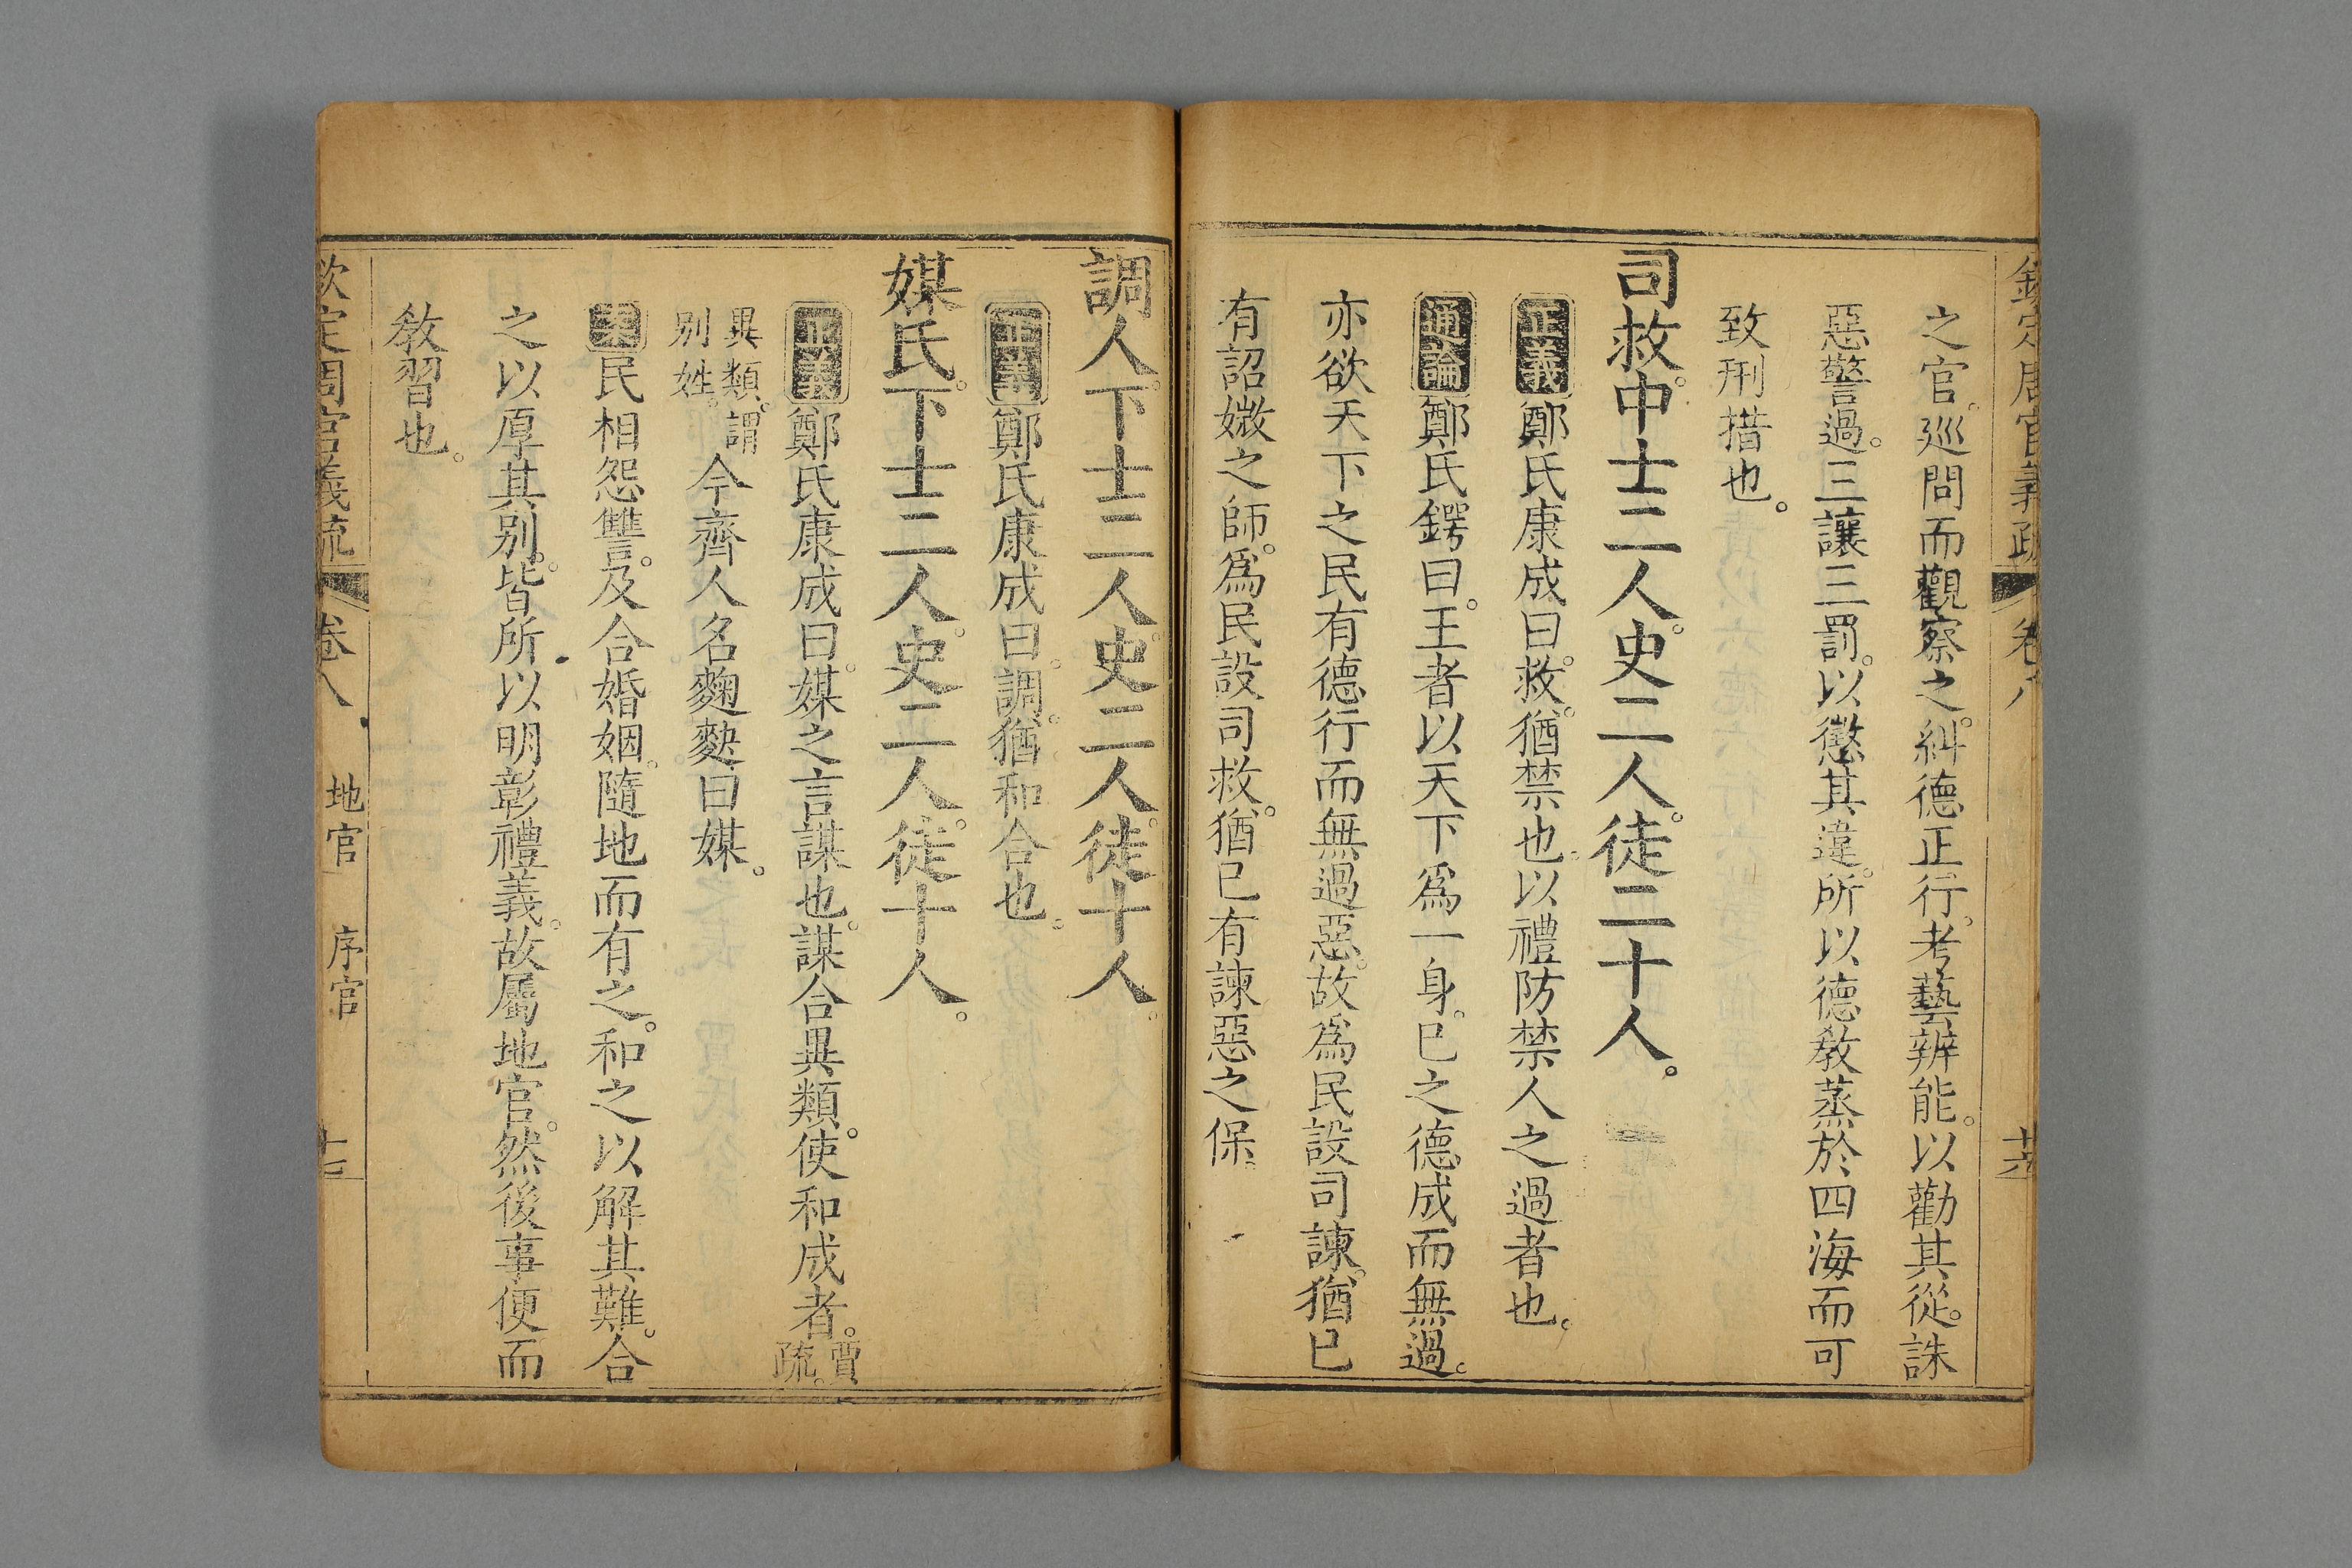 欽定周官義疏 卷八 十六
之官。巡問而觀察之。糾德正行。考藝辨能。以勸其從。誅
惡警過。三讓三罰。以懲其違。所以德敎蒸於四海而可
致刑措也。
司救。中士二人。史二人。徒二十人。
正義 鄭氏康成曰。救。猶禁也。以禮防禁人之過者也。
通論 鄭氏鍔曰。王者以天下爲一身。已之德成而無過。
亦欲天下之民有德行而無過惡。故爲民設司諫。猶已
有詔媺之師。爲民設司救。猶已有諫惡之保。
調人。下士二人。史二人。徒十人。
正義 鄭氏康成曰。調。猶和合也。
媒氏。下士二人。史二人。徒十人。
正義 鄭氏康成曰。媒之言謀也。謀合異類。使和成者。賈疏。
異類。謂別姓。今齊人名麴麩曰媒。
案 民相怨讐。及合婚姻。隨地而有之。和之以解其難。合
之以厚其别。皆所以明彰禮義。故屬地官。然後事便而
敎習也。
欽定周官義疏 卷八 地官 序官 十七